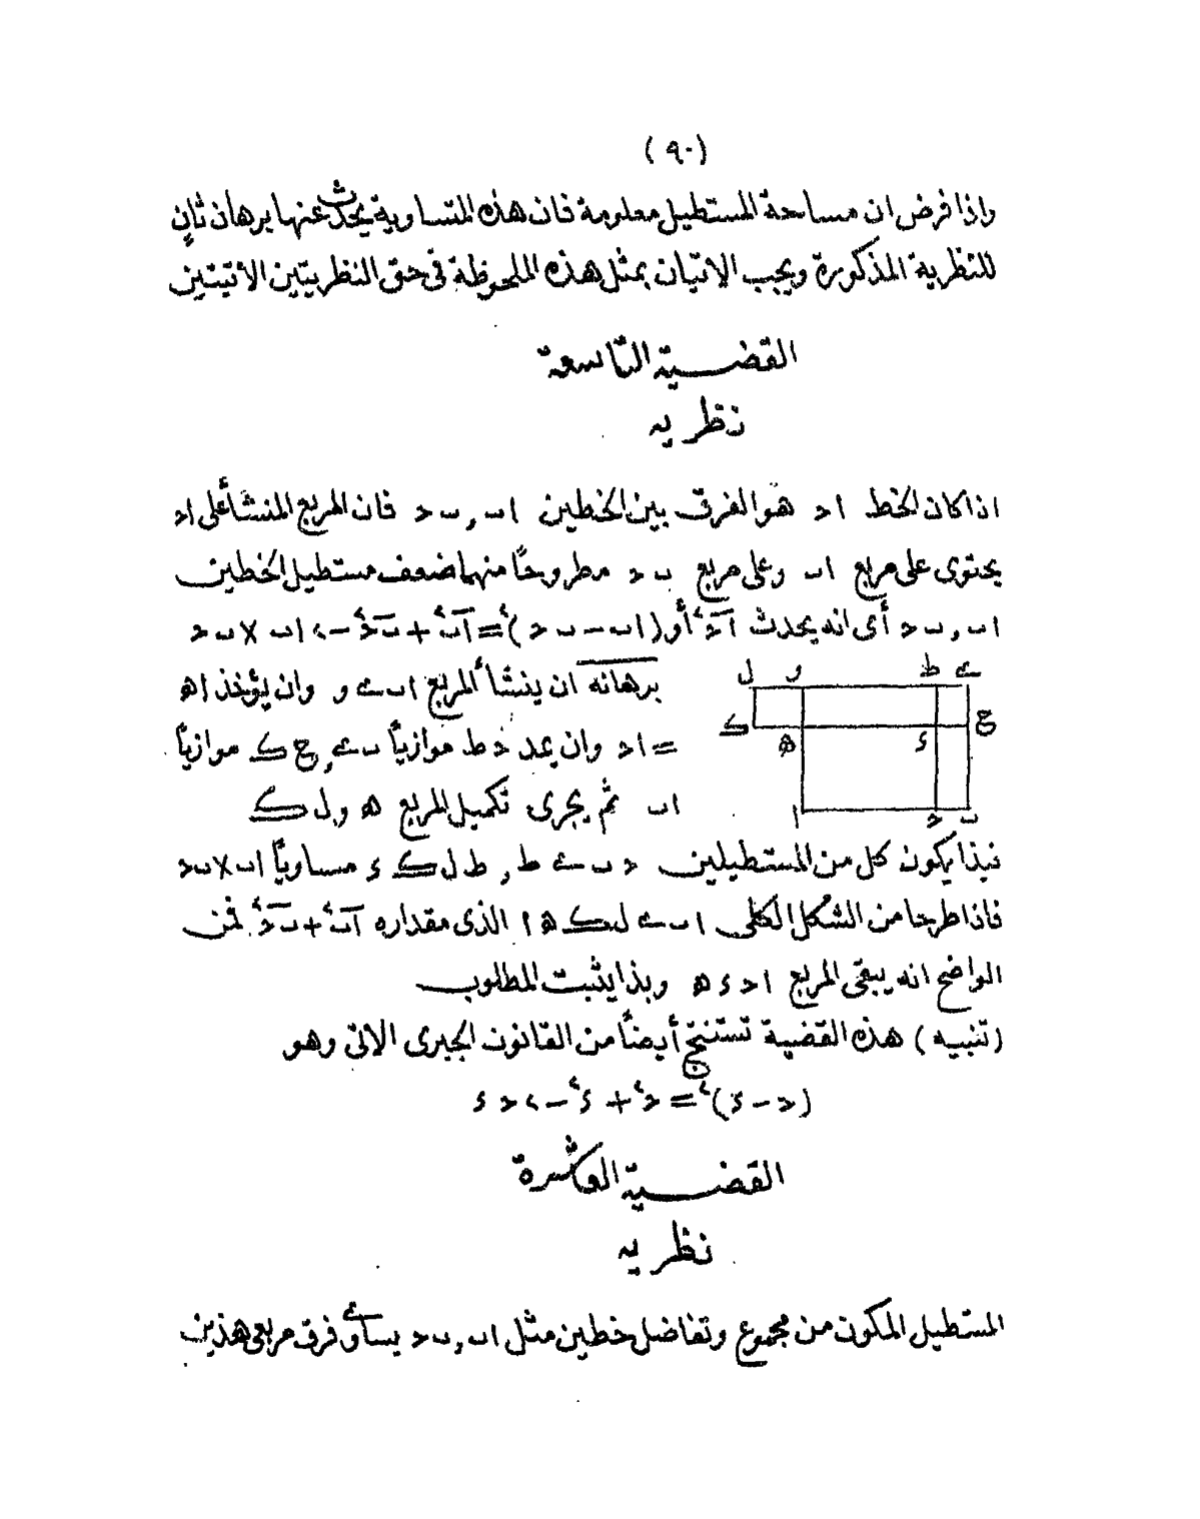 (٩٠)
واذا فرض ان مساحة المستطيل معلومة فان هذه المتساوية يحدث عنها برهان ثانٍ
للنظرية المذكورة ويجب الاتيان بمثل هذه الملحوظة فى حق النظريتين الآتيتين
القضية التاسعة
نظريه
اذا كان الخط اد هو الفرق بين الخطين اب , بد فان المربع المنشأ على اد
يحتوى على مربع اب وعلى مربع بد مطروحًا منهما ضعف مستطيل الخطين
اب , بد أى انه يحدث اد٢ أو (اب − بد)٢ = اب٢ + بد٢ − ٢ اب × بد
برهانه ان ينشأ المربع اب ے و وان يؤخذ اه
= اد وان يمد دط موازياً بے , ح ك موازياً
اب ثم يجرى تكميل المربع ه و ل ك
ل و ط ے
ك ه ء ح
ا د ب
فبذا يكون كل من المستطيلين د ب ے ط , ط ل ك ء مساوياً اب × بد
فاذا طرحا من الشكل الكلى اب ے ل ك ه ا الذى مقداره اب٢ + بد٢ فمن
الواضح انه يبقى المربع ا د ء ه وبذا يثبت المطلوب
(تنبيه) هذه القضية تستنتج أيضًا من القانون الجبرى الاتى وهو
(د − ء)٢ = د٢ + ء٢ − ٢ د ء
القضية العاشرة
نظريه
المستطيل المكون من مجموع وتفاضل خطين مثل اب , بد يساوى فرق مربعى هذين